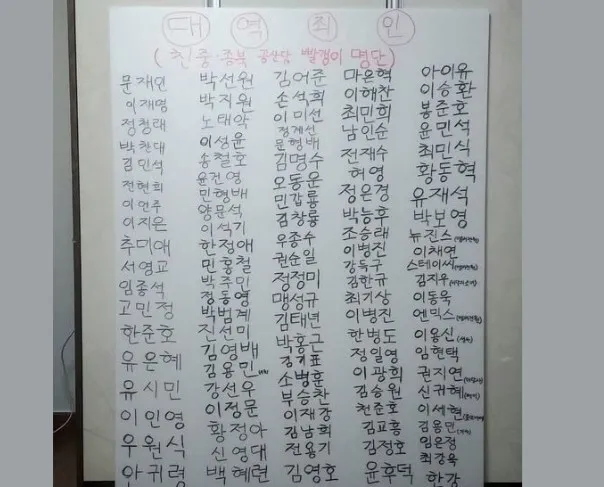 대 역 죄 인
(친중·종북 공산당 빨갱이 명단)
문재인 박선원 김어준 마은혁 아이유
이재명 박지원 손석희 이해찬 이승환
정청래 노태악 이미선 최민희 봉준호
박찬대 이성윤 정계선 남인순 윤민석
김민석 송철호 문형배 전재수 최민식
전현희 윤건영 김명수 허영 황동혁
이언주 민형배 오동운 정은경 유재석
이지은 양문석 민갑룡 박능후 박보영
추미애 이석기 김창룡 조승래 뉴진스
서영교 한정애 우종수 이병진 이채연
임종석 민홍철 권순일 강득구 스테이씨
고민정 박주민 정정미 김한규 김지우
한준호 정동영 맹성규 최기상 이동욱
유은혜 박범계 김태년 이병진 엔믹스
유시민 진선미 박홍근 한병도 이용신
이인영 김영배 김기표 정일영 임현택
우원식 김용민 소병훈 이광희 권지연
안귀령 강선우 부승찬 김승원 신귀혜
이정문 이재강 천준호 이세현
황정아 김남희 김교흥 김용민
신영대 전용기 김정호 임은정
백혜련 김영호 윤후덕 최강욱
한강